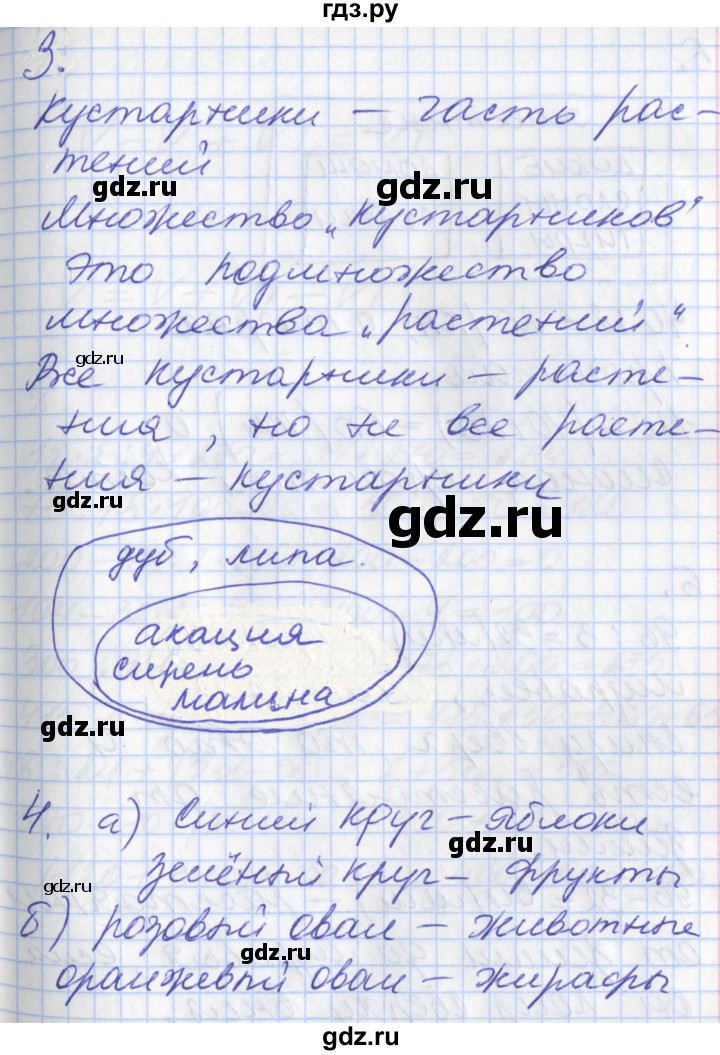 гдз.ру
3.
Кустарники – часть рас-
тений
gdz.ru
gdz.ru
Множество „кустарников"
Это подмножество
множества „растений"
gdz.ru
Все кустарники – расте-
ния, но не все расте-
ния – кустарники
gdz.ru
gdz.ru
дуб, липа.
акация
сирень
малина
gdz.ru
4. а) Синий круг – яблоки
gdz.ru
Зелёный круг – фрукты
gdz.ru
б) розовый овал – животные
gdz.ru
оранжевый овал – жирафы
gdz.ru
gdz.ru